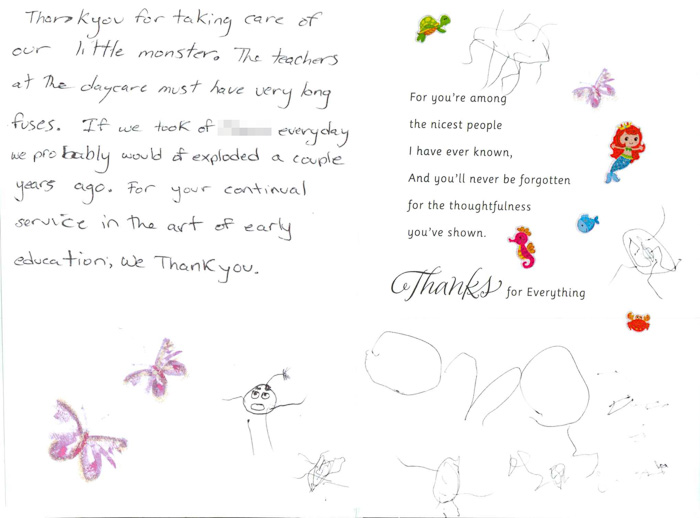 Thankyou for taking care of
our little monster. The teachers
at The daycare must have very long
fuses. If we took of everyday
we probably would of exploded a couple
years ago. For your continual
service in the art of early
education, We Thankyou.
For you're among
the nicest people
I have ever known,
And you'll never be forgotten
for the thoughtfulness
you've shown.
Thanks for Everything